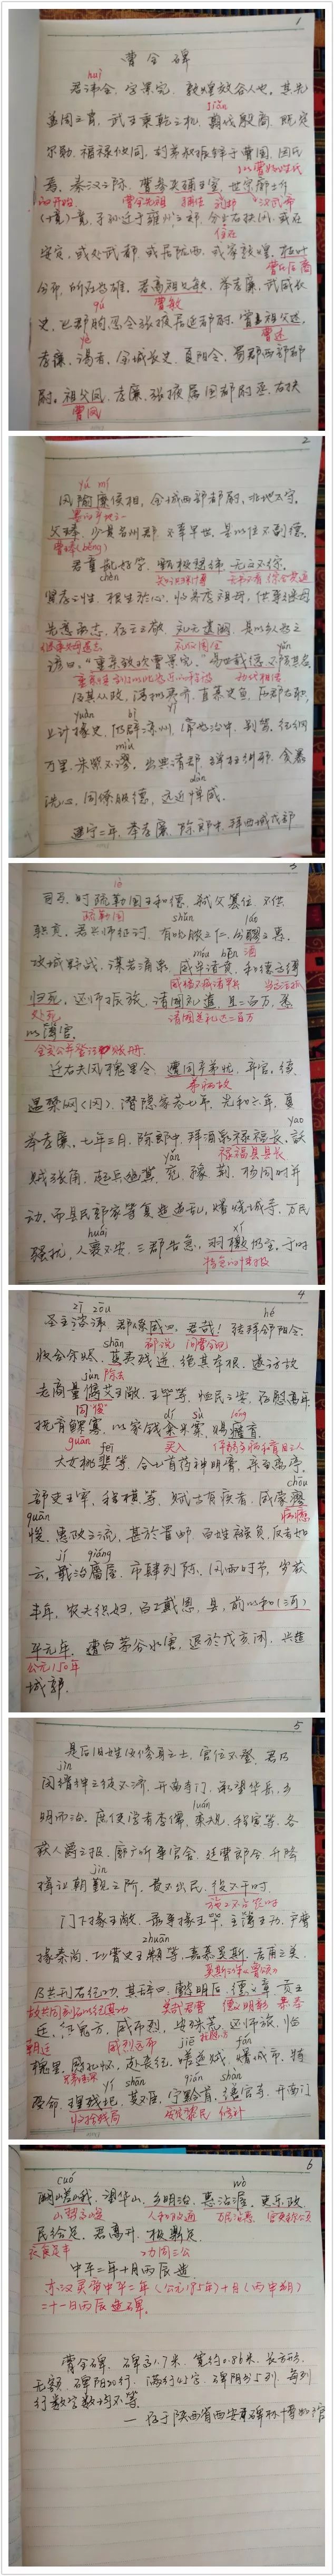 1
曹全碑
huī
君讳全，字景完，敦煌效谷人也。其先
jiǎn
盖周之胄，武王秉乾之机，翦伐殷商，既定
尔勋，福禄攸同，封弟叔振铎于曹国，因氏
以曹为姓氏
焉。秦汉之际，曹参夹辅王室，世宗廓土斥
曹全先祖 辅佐 汉武帝
竟，子孙迁于雍州之郊，分止右扶风，或在
住在
安定，或处武都，或居陇西，或家敦煌，枝
曹氏后裔
分布，所在为雄。君高祖父敏，举孝廉，武威长
曹敏
史，巴郡朐忍令，张掖居延都尉。曾祖父述，
曹述
孝廉，谒者，金城长史，夏阳令，蜀郡西部都
尉。祖父凤，孝廉，张掖属国都尉丞，右扶
曹凤
2
yú mí
风隃麋侯相，金城西部都尉，北地太守。
父琫，少贯名州郡，不幸早世，是以位不副德。
曹琫(běng)
君童龀好学，甄极毖纬，无文不综。
chèn
贤孝之性，根生于心，收养季祖母，供事继母，
先意承志，存亡之敬，礼无遗阙，是以乡人为之
谚曰："重亲致欢曹景完。"易世载德，不陨其名。
及其从政，清拟夷齐，直慕史鱼，历郡右职，
上计掾史，仍辟凉州，常为治中、别驾。纪纲
万里，朱紫不谬，出典诸郡，弹枉纠邪，贪暴
洗心，同僚服德，远近惮威。
建宁二年，举孝廉，除郎中，拜西域戊部
3
司马。时疏勒国王和德，弑父篡位，不供
疏勒国
职贡，君兴师征讨，有吮脓之仁，分醪之惠，
攻城野战，谋若涌泉，威牟诸贲，和德面缚
归死，还师振旅，诸国礼遗，且二百万，悉
诸国其礼达二百万
以簿官。
迁右扶风槐里令，遭同产弟忧，弃官。续
遇禁网(冈)，潜隐家巷七年。光和六年，复
举孝廉，七年三月，除郎中，拜酒泉禄福长。訞
yao
禄福县县长
贼张角，起兵幽冀，兖、豫、荆、杨同时并
动。而县民郭家等复造逆乱，燔烧城寺，万民
骚扰，人裹不安，三郡告急，羽檄仍至。于时
4
圣主谘诹，群僚咸曰：君哉！转拜郃阳令，
收合余烬，芟夷残迸，绝其本根。遂访故
老商量俊艾王敞、王毕等，恤民之要，存慰高年，
抚育鳏寡，以家钱籴米粟，赐癃盲。
买入
大女桃婓等，合七首药神明膏，亲至离亭，
部吏王宰、程横等，赋与有疾者，咸蒙瘳
悛，惠政之流，甚于置邮，百姓襁负，反者如
云，戢治廧屋，市肆列陈，风雨时节，岁获
丰年，农夫织妇，百工戴恩，县，前以和(河)
平元年，遭白茅谷水害，退于戊亥间，兴造
公元150年
城郭。
5
是后旧姓及修身之士，官位不登，君乃
闵缙绅之徒不济，开南寺门，承望华岳，乡
明而治，庶使学者李儒、栾规、程寅等，各
获人爵之报。廊广听事官舍，廷曹郎合，升降
揖让朝觐之阶，费不出民，役不干时。
门下掾王敞、录事掾王毕、主簿王历、户曹
掾秦尚、功曹史王颛等，嘉慕奚斯、考甫之美，
乃共刊石纪功，其辞曰：懿明后，德义章，贡王
廷，征鬼方，威布烈，安殊荒，还师旅，临
槐里，感孔怀，赴丧纪，嗟逆贼，燔城市，特
受命，理残圮，芟不臣，宁黔首，缮官寺，开南门，
6
阙嵯峨，望华山，乡明治，惠沾渥，吏乐政，
人和政通
民给足，君高升，极鼎足。
中平二年十月丙辰造。
东汉灵帝中平二年（公元185年）十月（丙申朔）
二十一日丙辰造碑。
曹全碑，碑高1.7米，宽约0.86米，长方形，
无额，碑阳20行，满行45字，碑阴分5列，每列
行数字数均不等。
— 存于陕西省西安市碑林博物馆